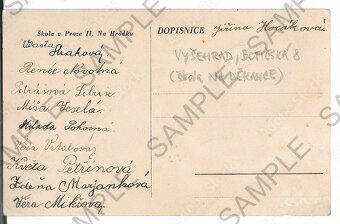 Škola v Praze II. Na Hrádku
Vlasta
Strakova,
Renée Novotná
Petrášová Libuše
Míša Veselá
Milada Pokorná
Věra Vrtalová
Květa Petřinová
Zdeňa Marjanková
Věra Mikšová
DOPISNICE
Jiřina Horáková
VYŠEHRAD, BOTIČSKÁ 8
(ŠKOLA NA DĚKANCE)
SAMPLE
SAMPLE
SAMPLE
SAMPLE
SAMPLE
SAMPLE